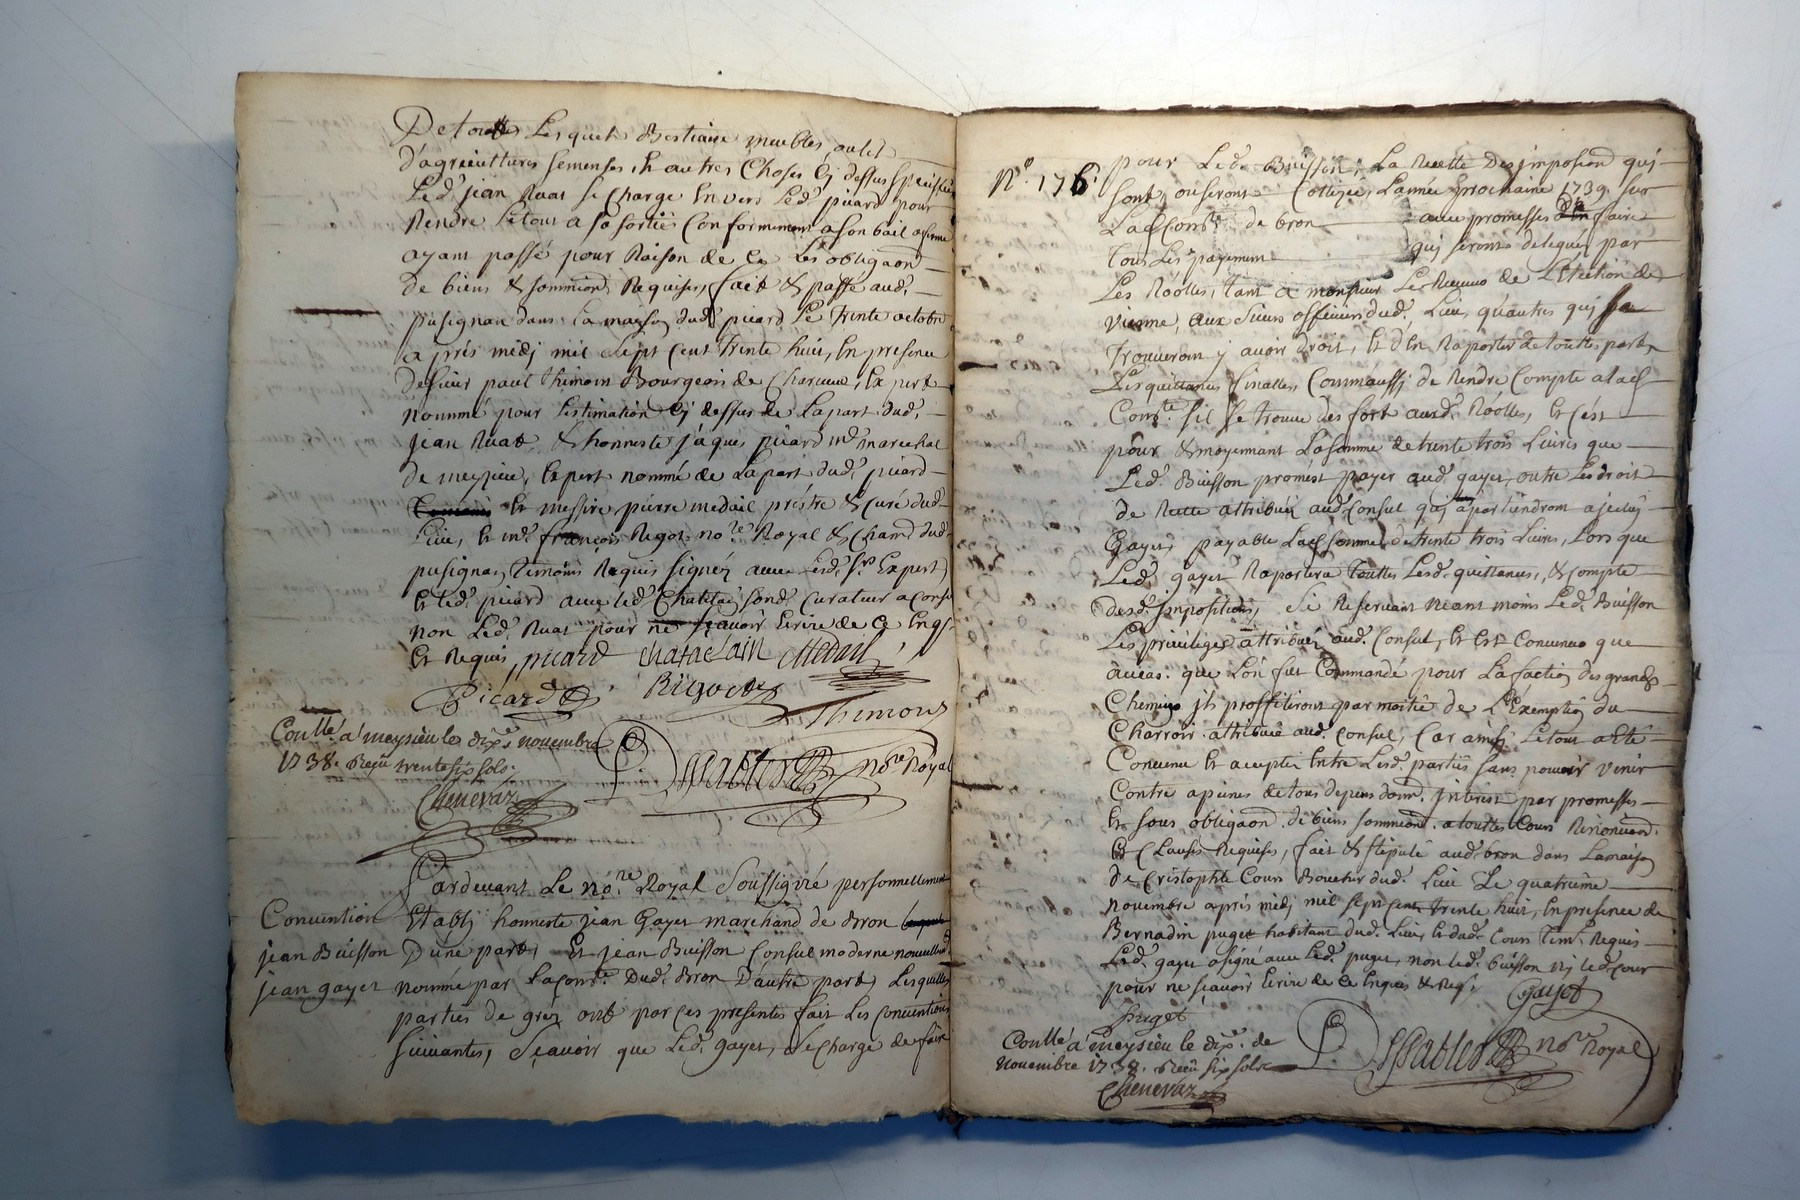 De toutes Lesquels Bestiaux meubles outils
d'agricultures semenses, et autres Choses Cy dessus Speciffiées
Led. jean Ruat se Charge Envers Led. picard pour
Rendre Letout a sa sortie Conformement a son bail a ferme
ayant passé pour Raison de Ce Les obligaõns
de biens & sommiõns Requises, fait & passé aud.
pusignan dans La maison dud. picard Le trente octobre
aprés midj mil sept Cent trente huit, En presence
de sieur paul thimon Bourgeois de Charuieu, Expert
nommé pour Lestimation Cj dessus de Lapart dud.
jean Ruat, & honneste jaques picard md. marechal
de meyzieu, Expert nommé de Lapart dud. picard
et messire pierre medail préstre & Curé dud.
Lieu, et md. françois Rigot no.re Royal & Chatn. dud.
pusignan temoins Requis signés avec Lesd. srs Experts
Et led. picard avec led. Chatelain sond. Curateur a Conse
non Led. Ruat pour ne sçavoir Ecrire de Ce Enqs.
Et Requis, picard chataclain Medail
Picard Rigot Thimon
Conllé a meysieu le dix.e novembre
1738. Reçu trente six sols.
Chenevaz
P. Sablet no.re Royal
Pardevant Le no.re Royal Soussigné personnellement
Convention
Etablj honneste jean Gayet marchand de Bron
jean Buisson
D'une part, Et jean Buisson Consul moderne nouvellemt.
jean gayet
nommé par La Com.te Dud. Bron D'autre part, Lesquelles
parties de grez ont par Ces presentes fait Les Conventions
suivantes, Sçavoir que Led. Gayet, se Charge de faire
N.o 176.
pour Led. Buisson, La Recette Des jmposiõns quj
sont, ou seront Cottizées L'année prochaine 1739. sur
Lad. Com.te de bron avec promesses D'En faire
tous Les payemens quj seront delegués par
Les Róolles, tant a monsieur Le Receveur de L'Election de
Vienne, aux sieurs officiers dud. Lieu, qu'autres quj se
trouveront y avoir droit, Et d'En Raporter de touttes parts
Les quittances finalles, Comm'aussj de Rendre Compte a lad.
Com.te s'il se trouve des fort auxd. Róolles, Et C'est
pour & moyennant La somme de trente trois Livres que
Led. Buisson promést payer aud. gayet, outre Les droit
de Recette attribués aud. Consul quj apartiendront a jceluj
Gayet, payable Lad. somme de trente trois Livres, Lors que
Led. gayet Raportera touttes Lesd. quittances, & Compte
desd. jmpositions, Se Reservant néant moins Led. Buisson
Les privileges attribués aud. Consul, Et Est Convenu que
au cas que L'on fut Commandé pour La faction des grands
Chemins jls proffiteront par moitié de L'Exemption du
Charroir attribuée aud. Consul, Car ainsj Letout a Eté
Convenu Et accepté Entre Lesd. parties sans pouvoir venir
Contre a peines de tous depens domm. jnterest par promesses
Et sous obligaõn. de biens sommiõn. a touttes Cours Renonciaõn.
Et Clauses Requises, fait & stipulé aud. bron dans La maison
de Cristophle Cour Boucher dud. Lieu Le quatrieme
novembre aprés midj mil sept Cent trente huit, En presence de
Bernadin puget habitant dud. Lieu, Et dud. Cour tem.s Requis
Led. gayet a signé avec Led. puget, non led. buisson nj led. Cour
pour ne sçavoir Ecrire de Ce Enquis & Req.s
Gayet
puget
Conllé a meysieu le dix.e de
novembre 1738. Reçu six sols
Chenevaz
P. Sablet no.re Royal